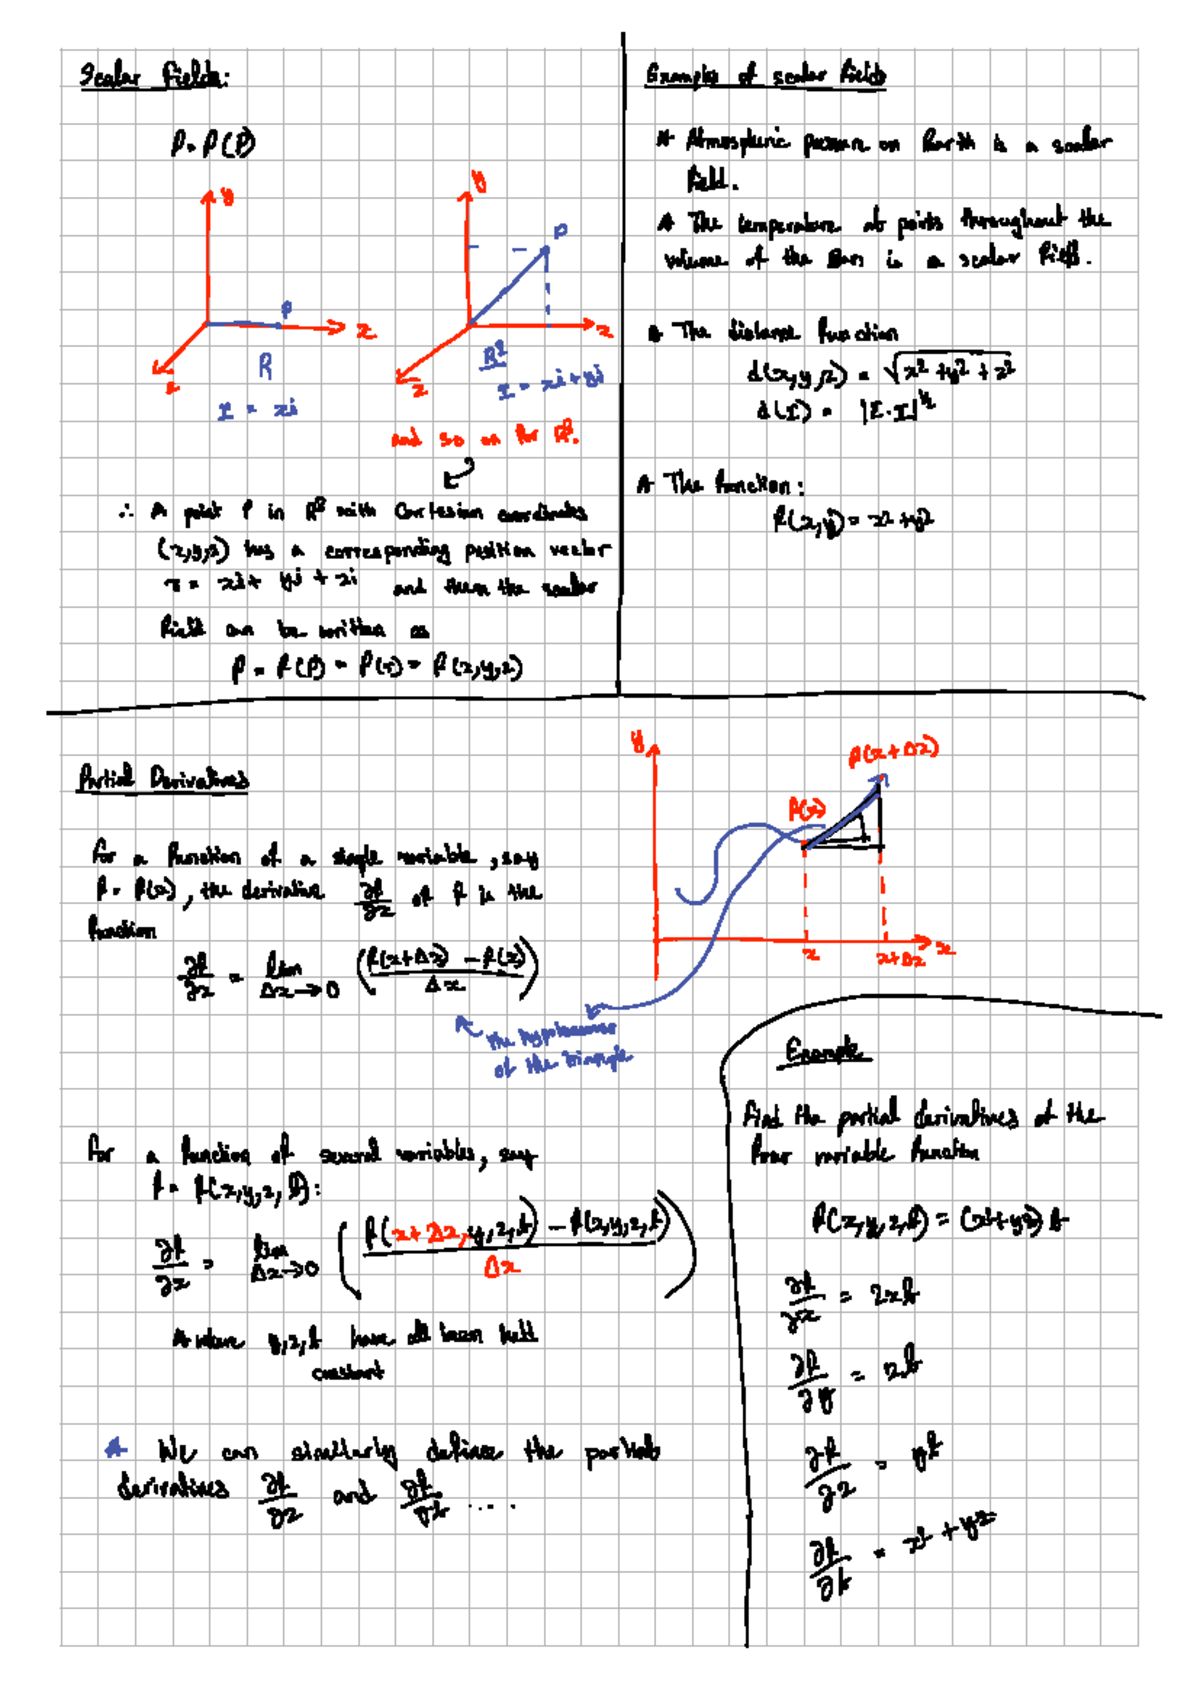 Scalar Fields:
f = f(P)
y
x
z
P
R
r = xi
y
x
z
P
R²
r = xi + yj
and so on for R³.
∴ A point P in R³ with Cartesian coordinates
(x,y,z) has a corresponding position vector
r = xi + yj + zi and then the scalar
field can be written as
f = f(P) = f(r) = f(x,y,z)
Examples of scalar fields
* Atmospheric pressure on Earth is a scalar
field.
* The temperature at points throughout the
volume of the Sun is a scalar field.
* The distance function
d(x,y,z) = √(x² + y² + z²)
d(r) = |r·r|^½
* The function:
f(x,y) = x² + y²
Partial Derivatives
For a function of a single variable, say
f = f(x), the derivative ∂f/∂x of f is the
function
∂f/∂x = lim Δx→0 ( (f(x+Δx) - f(x)) / Δx )
the hypotenuse
of the triangle
y
f(x)
f(x+Δx)
x
x+Δx
x
For a function of several variables, say
f = f(x,y,z,t):
∂f/∂x = lim Δx→0 ( (f(x+Δx,y,z,t) - f(x,y,z,t)) / Δx )
* where y,z,t have all been held
constant
* We can similarly define the partial
derivatives ∂f/∂z and ∂f/∂t ....
Example
Find the partial derivatives of the
four variable function
f(x,y,z,t) = (x²+yz) t
∂f/∂x = 2xt
∂f/∂y = zt
∂f/∂z = yt
∂f/∂t = x² + yz